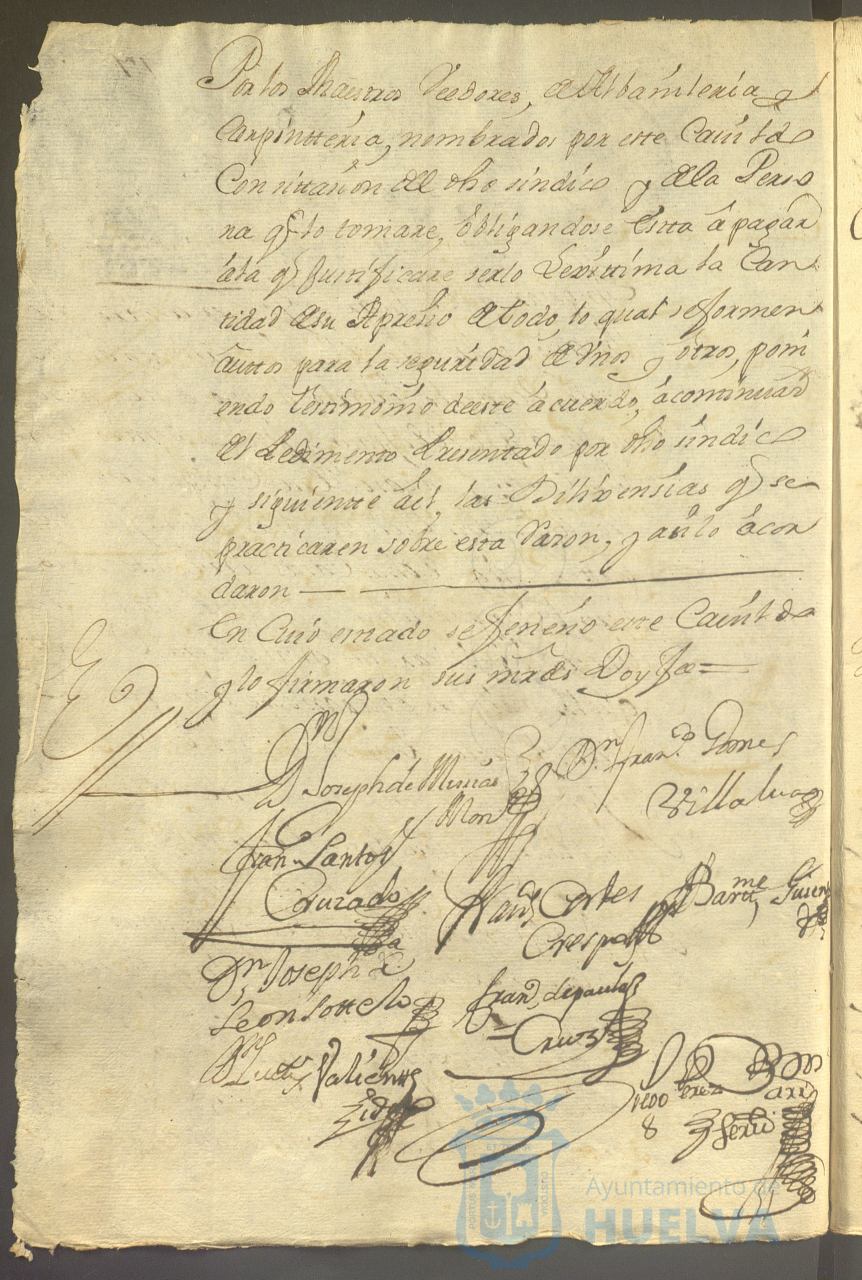 Por los Maestros Veedores, de Albañileria y
Carpintteria, nombrados por este Cavildo
Con zittazion del dho sindico y de la Perso
na q lo tomare, obligandose esta à pagar
àla q Justificare serlo Lexittima la Can
tidad de su Aprezio de todo, lo qual se formen
auttos para la seguridad de Unos y otros, poni
endo Testtimonio de este àcuerdo, àcontinuazon
del Pedimento Presentado por dho sindico
y siguiente àel, las Dilixensias q se
practicaren sobre esta Razon, y asi lo àcor
daron
En Cuio estado se feneció este Cavildo
y lo firmaron sus mrzds Doy fee
Dn Joseph de
Dn Franco Gomes
Villalva
Fran Santos
Cruzado
Cortes
Crespo
Bartme
Dn Joseph de
Leon Sottelo
Frano de paula
Cruz
Valiente
Perez
Ayuntamiento de
HUELVA